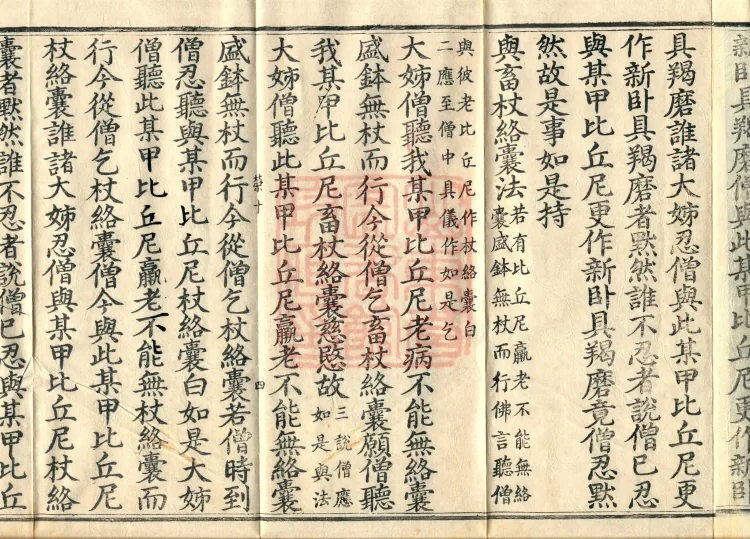 新卧具羯磨僧與此某甲比丘尼更作新卧
具羯磨誰諸大姊忍僧與此某甲比丘尼更
作新卧具羯磨者默然誰不忍者說僧已忍
與某甲比丘尼更作新卧具羯磨竟僧忍默
然故是事如是持
與畜杖絡囊法
若有比丘尼羸老不能無絡
囊盛鉢無杖而行佛言聽僧
與彼老比丘尼作杖絡囊白
二應至僧中具儀作如是乞
大姊僧聽我某甲比丘尼老病不能無絡囊
盛鉢無杖而行今從僧乞畜杖絡囊願僧聽
我某甲比丘尼畜杖絡囊慈愍故
三說僧應
如是與法
大姊僧聽此某甲比丘尼羸老不能無絡囊
榮十 四
盛鉢無杖而行今從僧乞杖絡囊若僧時到
僧忍聽與某甲比丘尼杖絡囊白如是大姊
僧聽此某甲比丘尼羸老不能無杖絡囊而
行今從僧乞杖絡囊僧今與此某甲比丘尼
杖絡囊誰諸大姊忍僧與某甲比丘尼杖絡
囊者默然誰不忍者說僧已忍與某甲比丘